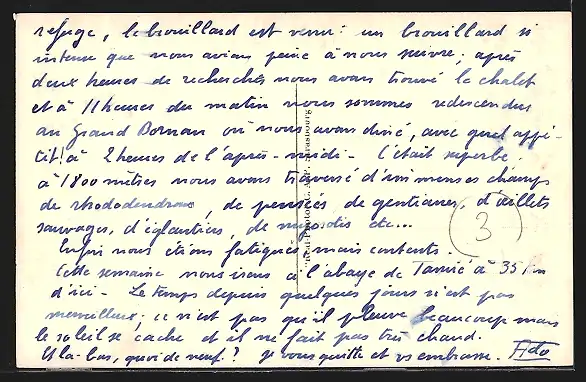 refuge, le brouillard est venu : un brouillard si
intense que nous avions peine à nous suivre ; après
deux heures de recherches nous avons trouvé le chalet
et à 11 heures du matin nous sommes redescendus
au Grand Bornan où nous avons dîné, avec quel appé-
tit ! à 2 heures de l'après-midi - C'était superbe.
à 1800 mètres nous avons traversé d'immenses champs
de rhododendrons, de pensées de gentianes, d'œillets
sauvages, d'églantines, de myosotis etc...
Enfin nous étions fatigués mais contents.
Cette semaine nous irons à l'abbaye de Tamié à 35 km
d'ici - Le temps depuis quelques jours n'est pas
merveilleux ; ce n'est pas qu'il pleuve beaucoup mais
le soleil se cache et il ne fait pas très chaud.
Et là-bas, quoi de neuf ? je vous quitte et vs embrasse.
3
Strasbourg